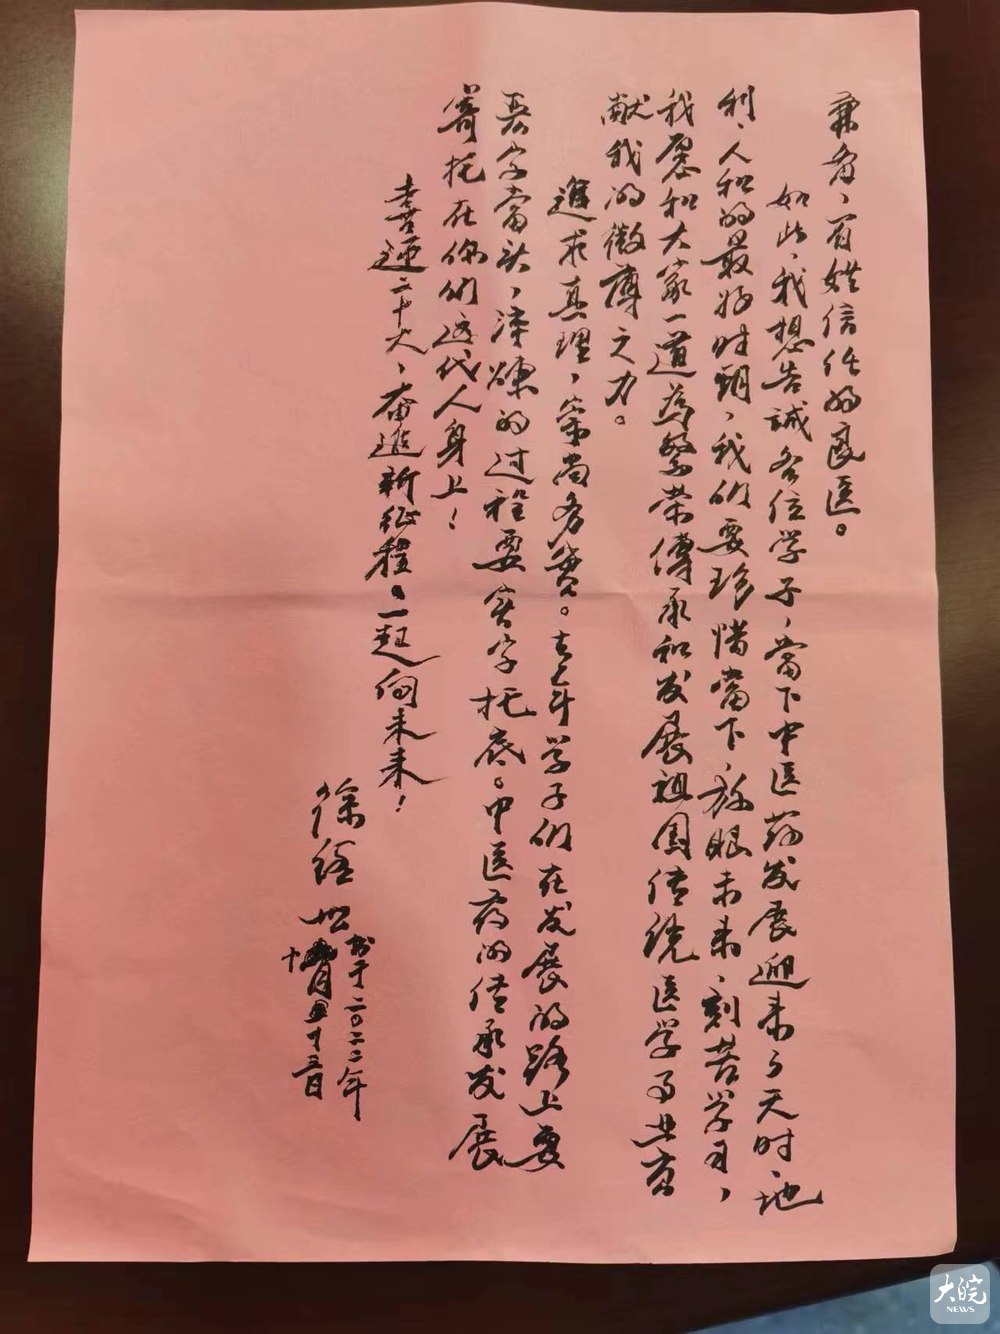 兼备，百姓信任的良医。
如此，我想告诫各位学子，當下中医药发展迎来了天时、地
利、人和的最好时期，我们要珍惜當下，放眼未来，刻苦学习，
我愿和大家一道為繁荣傳承和发展祖国传统医学事业贡
献我的微薄之力。
追求真理，崇尚务實。青年学子们在发展的路上要
吾字當头，淬煉的过程要实字托底。中医药的传承发展
寄托在你们这代人身上！
喜迎二十大，奋進新征程。一起向未来！
徐经世
书于二〇二二年
十月十三日
大皖
NEWS